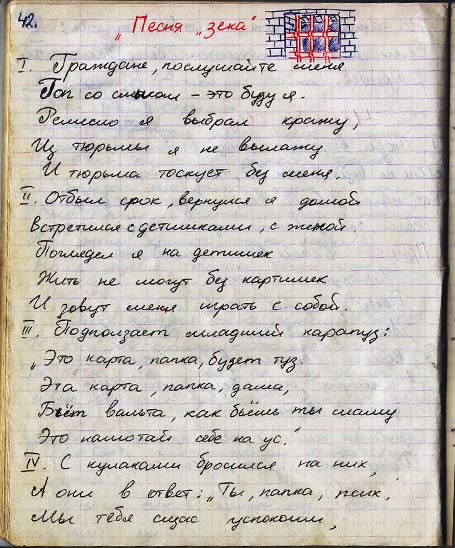 42.
„Песня „зека“
I. Граждане, послушайте меня
Гоп со смыком – это буду я.
Ремесло я выбрал кражу,
Из тюрьмы я не вылажу
И тюрьма тоскует без меня.
II. Отбыл срок, вернулся я домой
Встретился с детишками, с женой.
Поглядел я на детишек
Жить не могут без картишек
И зовут меня играть с собой.
III. Подползает младший карапуз:
„Это карта, папка, будет туз.
Эта карта, папка, дама,
Бьёт вальта, как бьёшь ты маму
Это намотай себе на ус.“
IV. С кулаками бросился на них,
А они в ответ: „Ты, папка, псих,
Мы тебя щас успокоим,